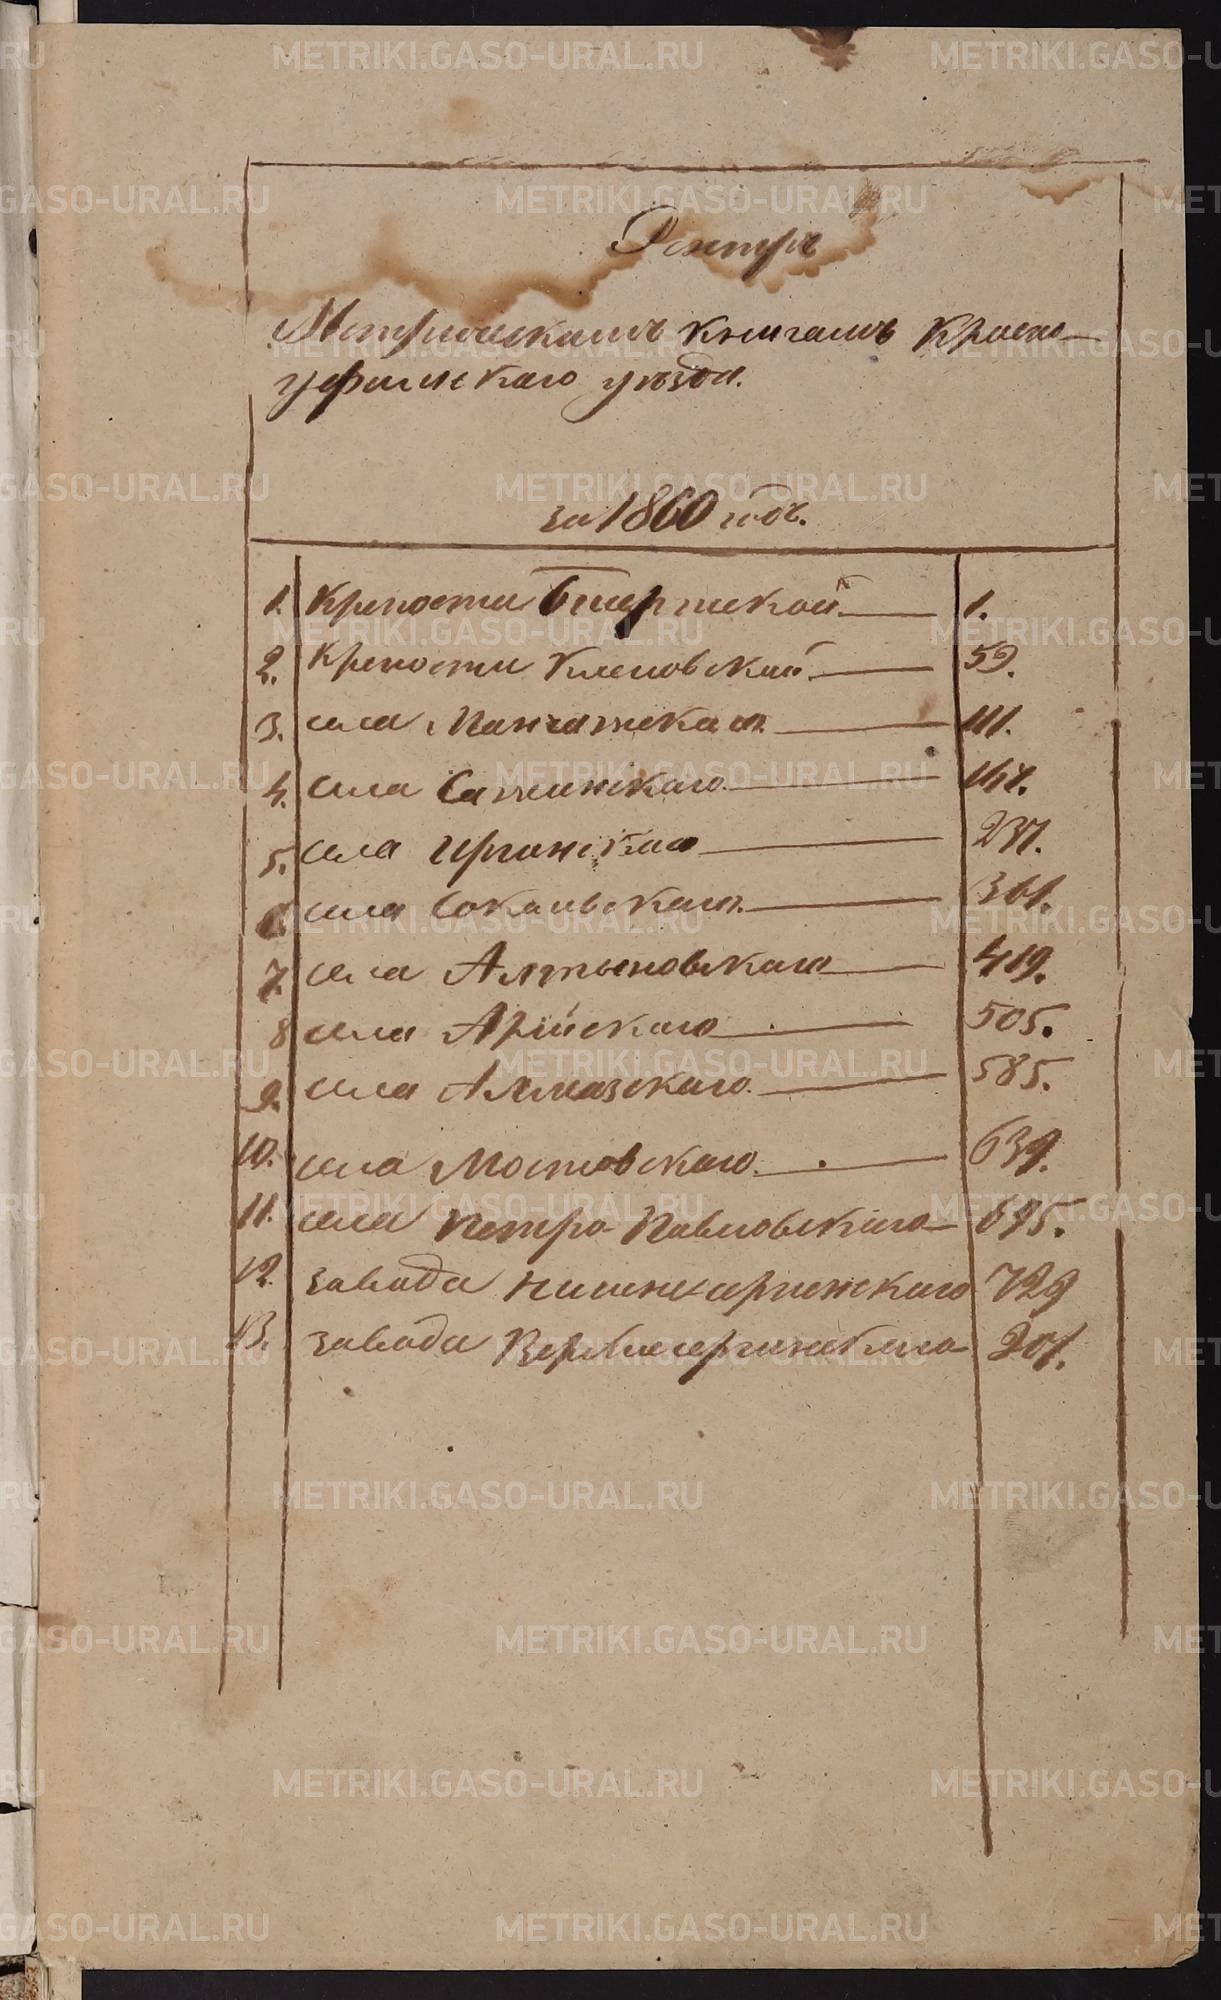 Реэстръ
Метрическимъ книгамъ Красно-
уфимскаго уѣзда.
за 1860 годъ.
1. Крепости Бисертской 1.
2. Крепости Кленовской 59.
3. села Манчажскаго 111.
4. села Сажинскаго 147.
5. села Иргинскаго 237.
6. села Сокольскаго 361.
7. села Алтыновскаго 419.
8 села Арійскаго 505.
9. села Алмазскаго 585.
10. села Мостовскаго 639.
11. села Петро-Павловскаго 695.
12. завода Нижнесергинскаго 729
13. завода Верхнесергинскаго
METRIKI.GASO-URAL.RU